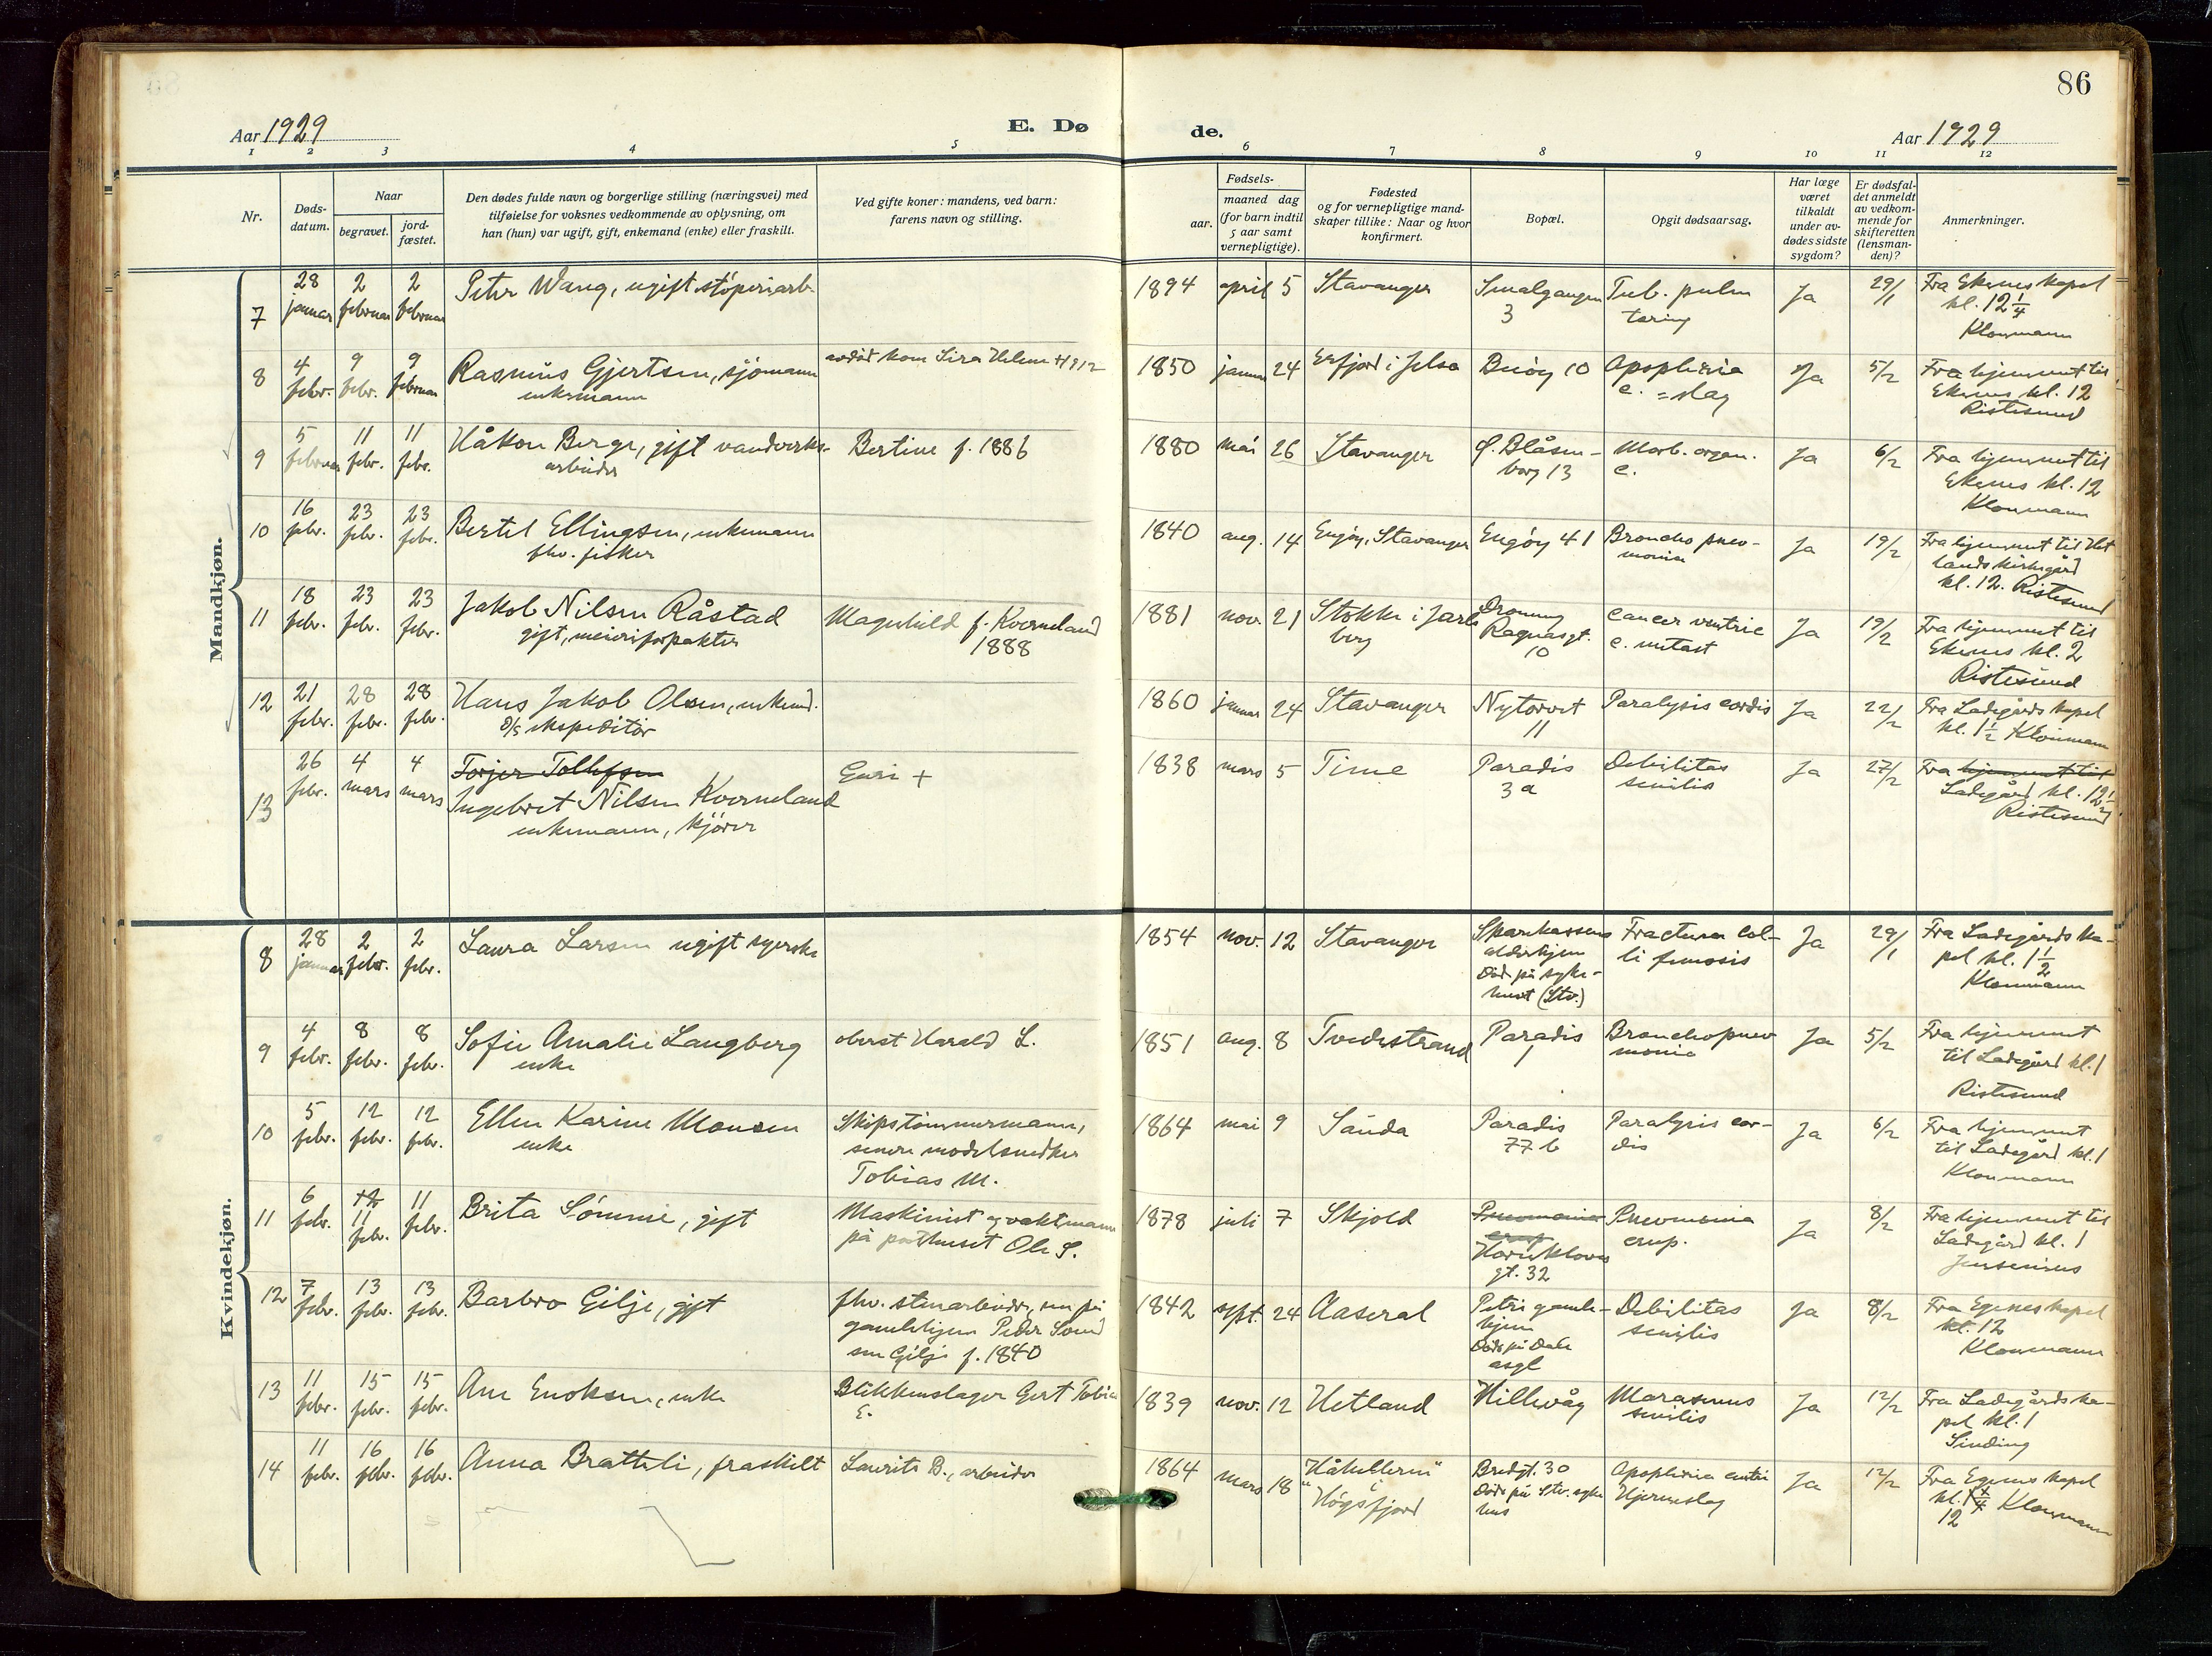 86
Aar 1929
E. Dø
de.
Aar 1929
1 2 3 4 5 6 7 8 9 10 11 12
Nr.
Døds-
datum.
Naar
begravet.
jord-
fæstet.
Den dødes fulde navn og borgerlige stilling (næringsvei) med
tilføielse for voksnes vedkommende av oplysning, om
han (hun) var ugift, gift, enkemand (enke) eller fraskilt.
Ved gifte koner: mandens, ved barn:
farens navn og stilling.
Fødsels-
aar.
maaned dag
(for barn indtil
5 aar samt
vernepligtige).
Fødested
og for vernepligtige mand-
skaper tillike: Naar og hvor
konfirmert.
Bopæl.
Opgit dødsaarsag.
Har læge
været
tilkaldt
under av-
dødes sidste
sygdom?
Er dødsfal-
det anmeldt
av vedkom-
mende for
skifteretten
(lensman-
den)?
Anmerkninger.
Mandkjøn.
7
28 januar
2 februar
2 februar
Peter Wang, ugift støperiarb.
1894 april 5
Stavanger
Smalgangen
3
Tub. pulm
tæring
Ja
29/1
Fra Ekenes kapel
kl. 12 1/4
Klonmann
8
4 febr.
9 febr.
9 februar
Rasmus Gjertsen, sjømann
enkemann
1850 januar 24
Erfjord i Jelsa
Buøy 10
Apoplexia
c. = slag
Ja
5/2
Fra hjemmet til
Ekenes kl. 12
Ristesund
9
5 februar
11 febr.
11 febr.
Håkon Berge, gift vandverks-
arbeider
Bertine f. 1886
1880 mai 26
Stavanger
Ø. Blåsen-
borg 13
Morb. organ.
c.
Ja
6/2
Fra hjemmet til
Ekenes kl. 12
Klonmann
10
16 febr.
23 febr.
23 febr.
Bertel Ellingsen, enkemann
fhv. fisker
1840 aug. 14
Engøy, Stavanger
Engøy 41
Broncho pnev-
monia
Ja
19/2
Fra hjemmet til Het
lands kirkegård
kl. 12. Ristesund
11
18 febr.
23 febr.
23 febr.
Jakob Nilsen Råstad
gift, meieriforpakter
Magnhild f. Kverneland
1888
1881 nov. 21
Stokke i Jarls
berg
Dronning
Ragnasgt.
10
Cancer ventric
c. metast
Ja
19/2
Fra hjemmet til
Ekenes kl. 2
Ristesund
12
21 febr.
28 febr.
28 febr.
Hans Jakob Olsen, enkemd.
D/S ekspeditør
1860 januar 24
Stavanger
Nytorvet
11
Paralysis cordis
Ja
22/2
Fra Ladegårds kapel
kl. 1 1/2 Klonmann
13
26 febr.
4 mars
4 mars
Torjer Tollefsen
Ingebret Nilsen Kverneland
enkemann, kjører
Guri +
1838 mars 5
Time
Paradis
3 a
Debilitas
senilis
Ja
27/2
Fra hjemmet til
Ladegård kl. 12 1/2
Ristesund
Kvindekjøn.
8
28 januar
2 febr.
2 febr.
Laura Larsen ugift syerske
1854 nov. 12
Stavanger
Sparekassens
alderhjem
Død på syke-
huset (Stv.)
Fractura col-
li femoris
Ja
29/1
Fra Ladegårds ka-
pel kl. 1 1/2
Klonmann
9
4 febr.
8 febr.
8 febr.
Sofie Amalie Langberg
enke
oberst Harald L.
1851 aug. 8
Tvedestrand
Paradis
1
Bronchopnev
monia
Ja
5/2
Fra hjemmet
til Ladegård kl. 1
Ristesund
10
5 febr.
12 febr.
12 febr.
Ellen Karine Monsen
enke
Skipstømmermann,
senere modelsnedker
Tobias M.
1864 mai 9
Sauda
Paradis
77 b
Paralysis cor-
dis
Ja
6/2
Fra hjemmet
til Ladegård kl. 1
Klonmann
11
6 febr.
12
11 febr.
11 febr.
Brita Sømme, gift
Maskinist og vaktmann
på posthuset Ole S.
1878 juli 7
Skjold
Pneumonia
crup
Haraklovs
gt. 32
Pneumonia
crup.
Ja
8/2
Fra hjemmet til
Ladegård kl. 1
Jensenius
12
7 febr.
13 febr.
13 febr.
Barbro Gilje, gift
fhv. stenarbeider, nu på
gamlehjem Peder Svend
sen Gilje f. 1840
1842 sept. 24
Aaseral
Petri gamle-
hjem
Døde på Dale
asyl
Debilitas
senilis
Ja
8/2
Fra Egenes kapel
kl. 12
Klonmann
13
11 febr.
15 febr.
15 febr.
Ane Enoksen, enke
Blikkenslager Gert Tobias
E.
1839 nov. 12
Hetland
Hillevåg
Marasmus
senilis
Ja
12/2
Fra Ladegårds ka-
pel kl. 1
Sinding
14
11 febr.
16 febr.
16 febr.
Anna Bratteli, fraskilt
Laurits B., arbeider
1864 mars 18
"Håhelleren"
i
Høgsfjord
Bredgt. 30
Døde på Stv. syke
hus
Apoplexia
Hjerneslag
Ja
12/2
Fra Egenes kapel
kl. 1 1/4 Klonmann
12